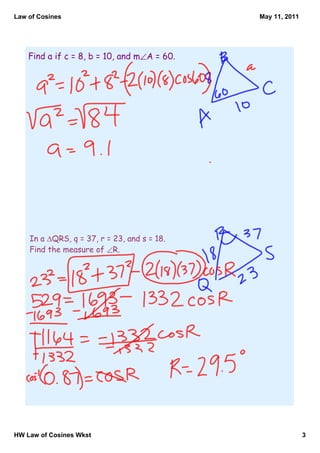 Law of Cosines May 11, 2011
Find a if c = 8, b = 10, and m∠A = 60.
B
a
8
60
C
10
A
a² = 10² + 8² - 2(10)(8)cos60
√a² = √84
a = 9.1
In a ΔQRS, q = 37, r = 23, and s = 18.
Find the measure of ∠R.
R 37
18
S
Q 23
23² = 18² + 37² - 2(18)(37)cosR
529 = 1693 - 1332 cosR
-1693 -1693
+1164 = =1332 cosR
+1332 =1332
cos⁻¹(0.87) = cosR
R = 29.5°
HW Law of Cosines Wkst 3